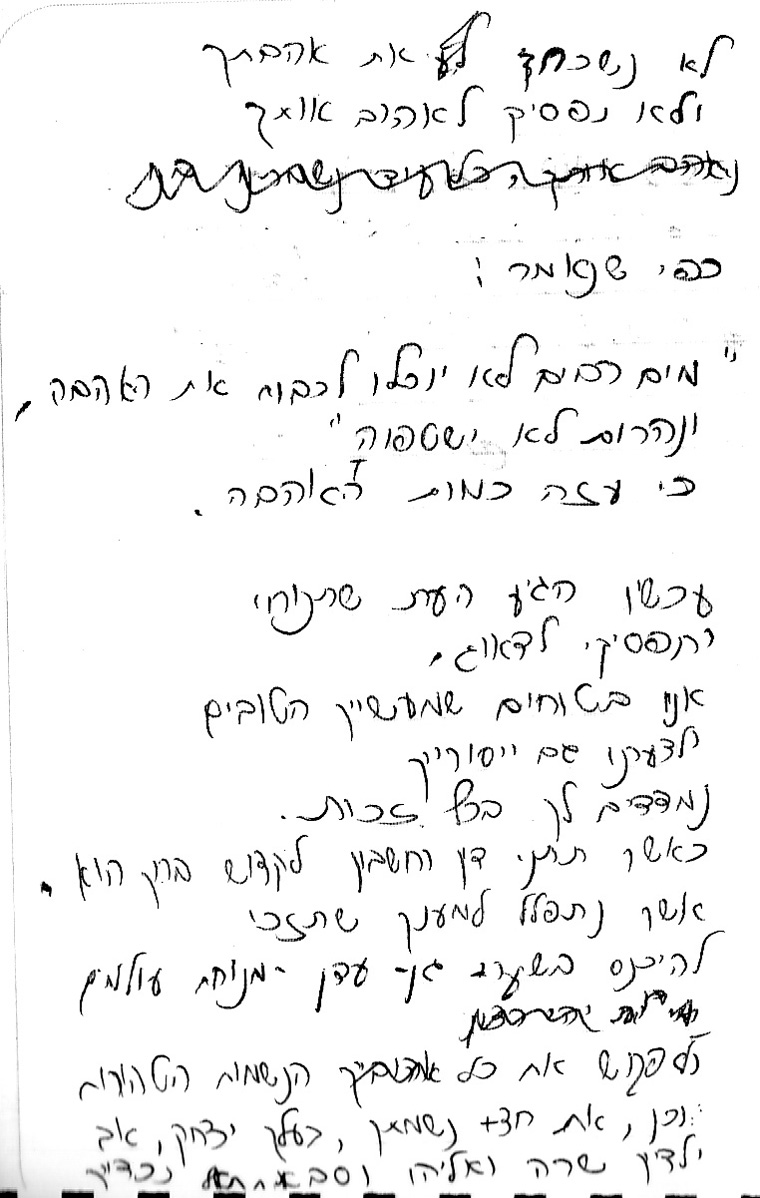 לא נשכח את אהבתך
ולא נפסיק לאהוב אותך
כפי שנאמר:
"מים רבים לא יוכלו לכבות את האהבה,
ונהרות לא ישטפוה"
כי עזה כמות האהבה.
עכשיו הגיע העת שתנוחי
ותפסיקי לדאוג,
אנו בטוחים שמעשייך הטובים
ולצערנו גם ייסורייך
נמדדים לך בכף זכות.
כאשר תתני דין וחשבון לקדוש ברוך הוא,
אשר נתפלל למענך שתזכי
להיכנס בשערי גן-עדן - מנוחת עולמים
ולפגוש את כל אהובייך הנשמות הטהורות
וכן, את חצי נשמתך, בעלך יצחק, אב
ילדיך שרה ואליהו וסבא נכדייך